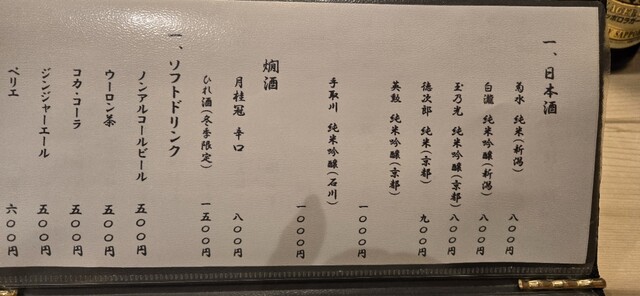 一、日本酒
菊水 純米(新潟) 八〇〇円
白瀧 純米吟醸(新潟) 八〇〇円
玉乃光 純米吟醸(京都) 八〇〇円
徳次郎 純米(京都) 九〇〇円
英勲 純米吟醸(京都)
一〇〇〇円
手取川 純米吟醸(石川)
一〇〇〇円
燗酒
月桂冠 辛口 八〇〇円
ひれ酒(冬季限定) 一五〇〇円
一、ソフトドリンク
ノンアルコールビール 五〇〇円
ウーロン茶 五〇〇円
コカ・コーラ 五〇〇円
ジンジャーエール 五〇〇円
ペリエ 六〇〇円